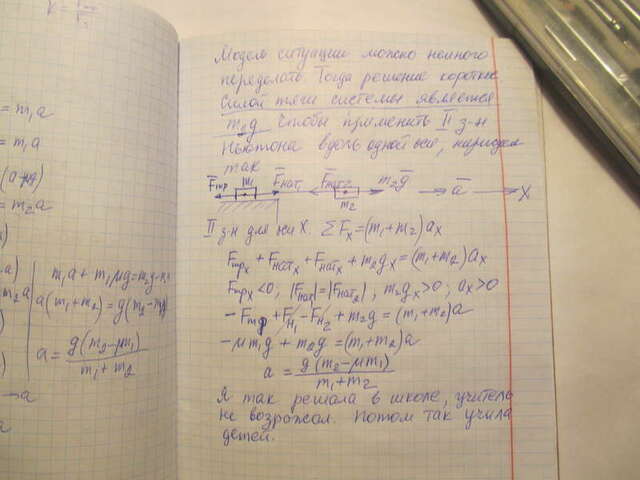 = m₁a
= m₁a
= m₂a
m₁a + m₁μg = m₂g
a(m₁+m₂) = g(m₂-μm₁)
a = g(m₂-μm₁) / m₁+m₂
Модель ситуации можно немного
переделать. Тогда решение короткое
Силой тяги системы является
m₂g Чтобы применить II з-н
Ньютона вдоль одной оси, нарисуем
так
F̅тр m₁ F̅нат₁ F̅нат₂ m₂ m₂g̅ a̅ X
II з-н для оси X. ΣFx=(m₁+m₂)ax
Fтрx + Fнат₁x + Fнат₂x + m₂gx=(m₁+m₂)ax
Fтрx<0, |Fнат₁|=|Fнат₂|, m₂gx>0; ax>0
-Fтр + Fн₁ - Fн₂ + m₂g = (m₁+m₂)a
-μm₁g + m₂g = (m₁+m₂)a
a = g(m₂-μm₁) / m₁+m₂
Я так решала в школе, учитель
не возражал. Потом так учила
детей.